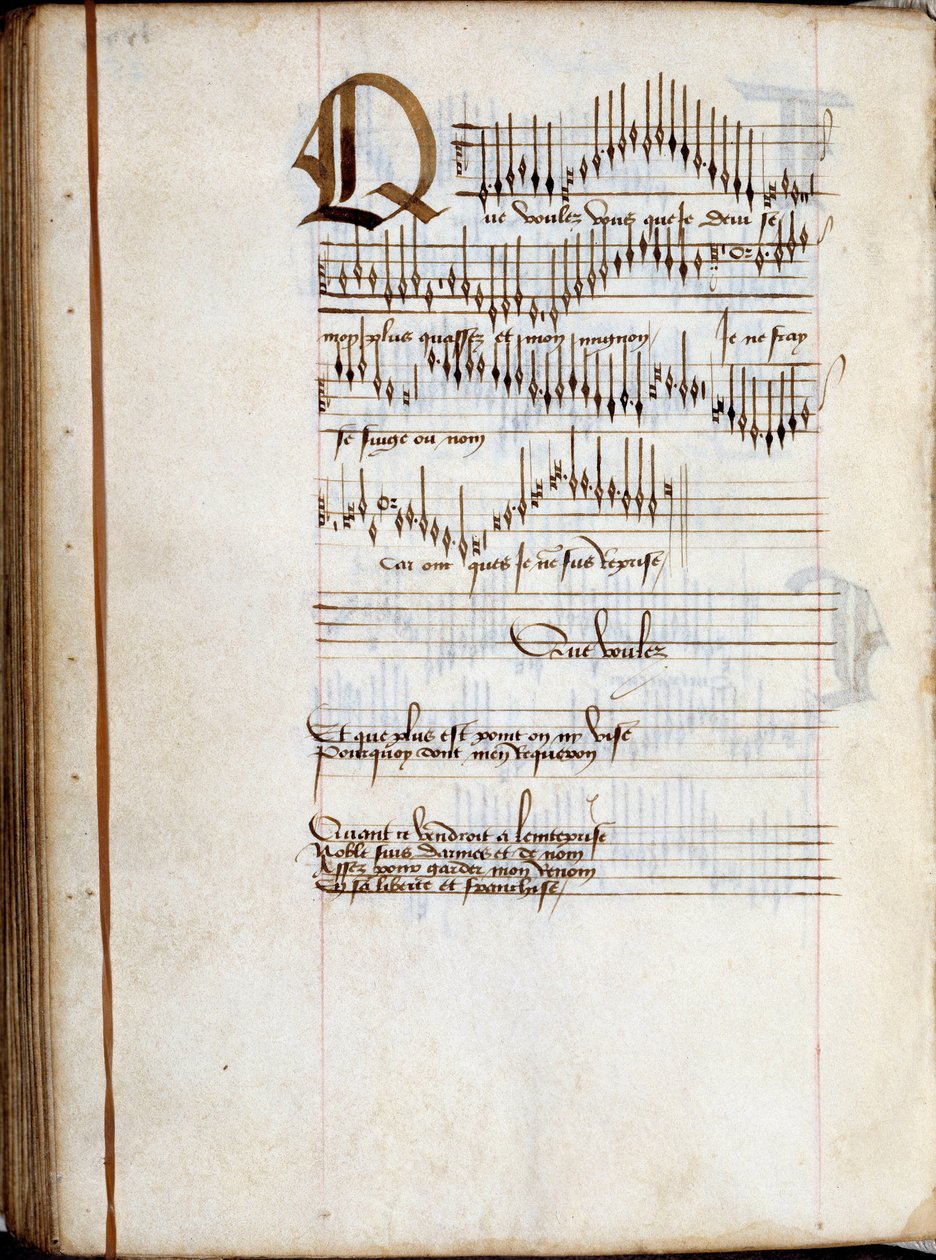 Que voulez vous que Je devise
mon plus quassez et mon mignon
Je ne scay
se singe ou non
Car onques Je ne fus Reprise
Que voulez
Et que plus est point on my vise
Pourquoy dont men Requeron
Quant it vendroit a lentreprise
Noble suis darmes et de nom
Assez pour garder mon Renom
En sa liberte et franchise